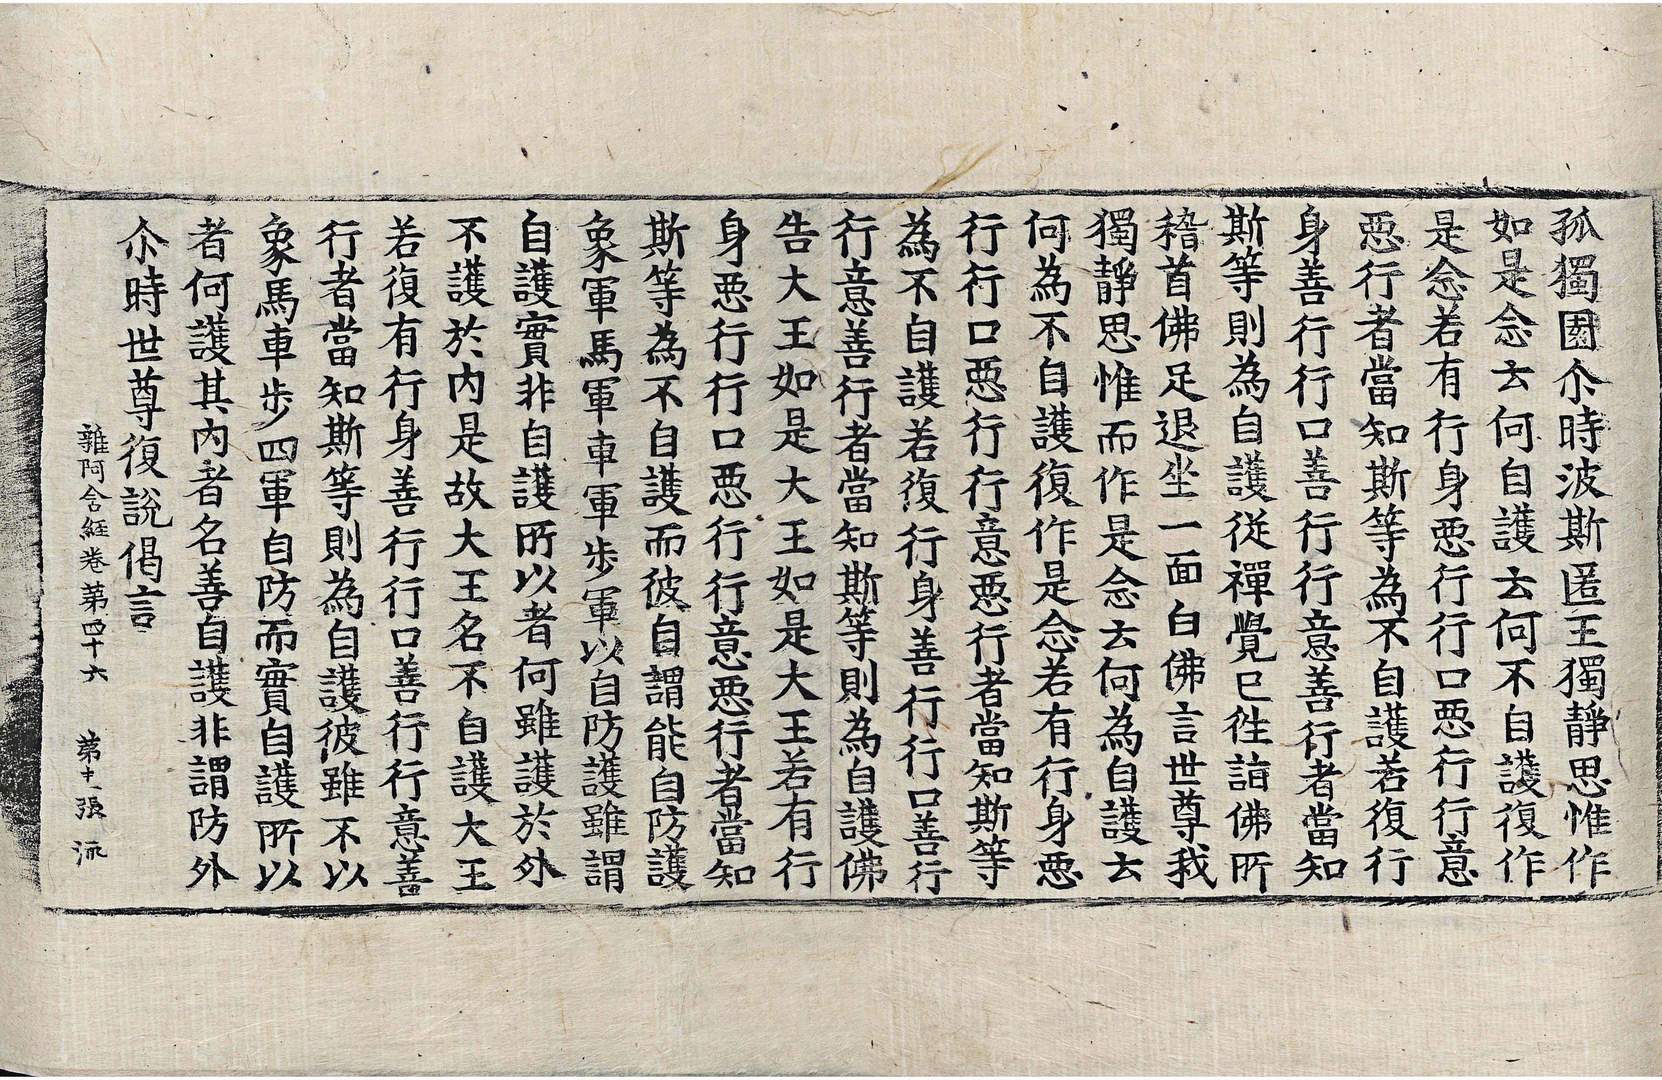 孤獨園尒時波斯匿王獨靜思惟作
如是念云何自護云何不自護復作
是念若有行身惡行行口惡行行意
惡行者當知斯等為不自護若復行
身善行行口善行行意善行者當知
斯等則為自護從禪覺已往詣佛所
稽首佛足退坐一面白佛言世尊我
獨靜思惟而作是念云何為自護云
何為不自護復作是念若有行身惡
行行口惡行行意惡行者當知斯等
為不自護若復行身善行行口善行
行意善行者當知斯等則為自護佛
告大王如是大王如是大王若有行
身惡行行口惡行行意惡行者當知
斯等為不自護而彼自謂能自防護
象軍馬軍車軍步軍以自防護雖謂
自護實非自護所以者何雖護於外
不護於內是故大王名不自護大王
若復有行身善行行口善行行意善
行者當知斯等則為自護彼雖不以
象馬車步四軍自防而實自護所以
者何護其內者名善自護非謂防外
尒時世尊復說偈言
雜阿含經卷第四十六 第十一張 流